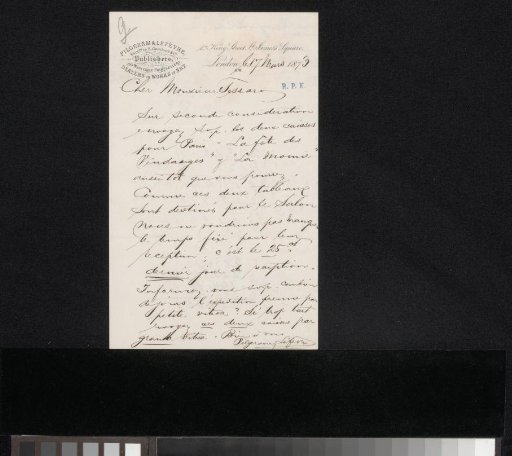 PILGERAM & LEFEVRE
Publishers,
DEALERS IN WORKS OF ART
1a King Street, St James's Square.
London 17 Mars 1873
R. P. K.
Cher Monsieur
Sur seconde considération
envoyez s.v.p. les deux caisses
pour Paris "La fête des
Vendanges" & "La Momie"
aussitôt que vous pouvez.
Comme ces deux tableaux
sont destinés pour le Salon
nous ne voudrions pas manquer
le temps fixé pour leur
réception, c'est le 25
dernier jour de réception.
Informez nous s.v.p. combien
de jours l'expédition prendra par
petite vitesse? Si trop tard
envoyez ces deux caisses par
grande vitesse.
Pilgeram & Lefèvre